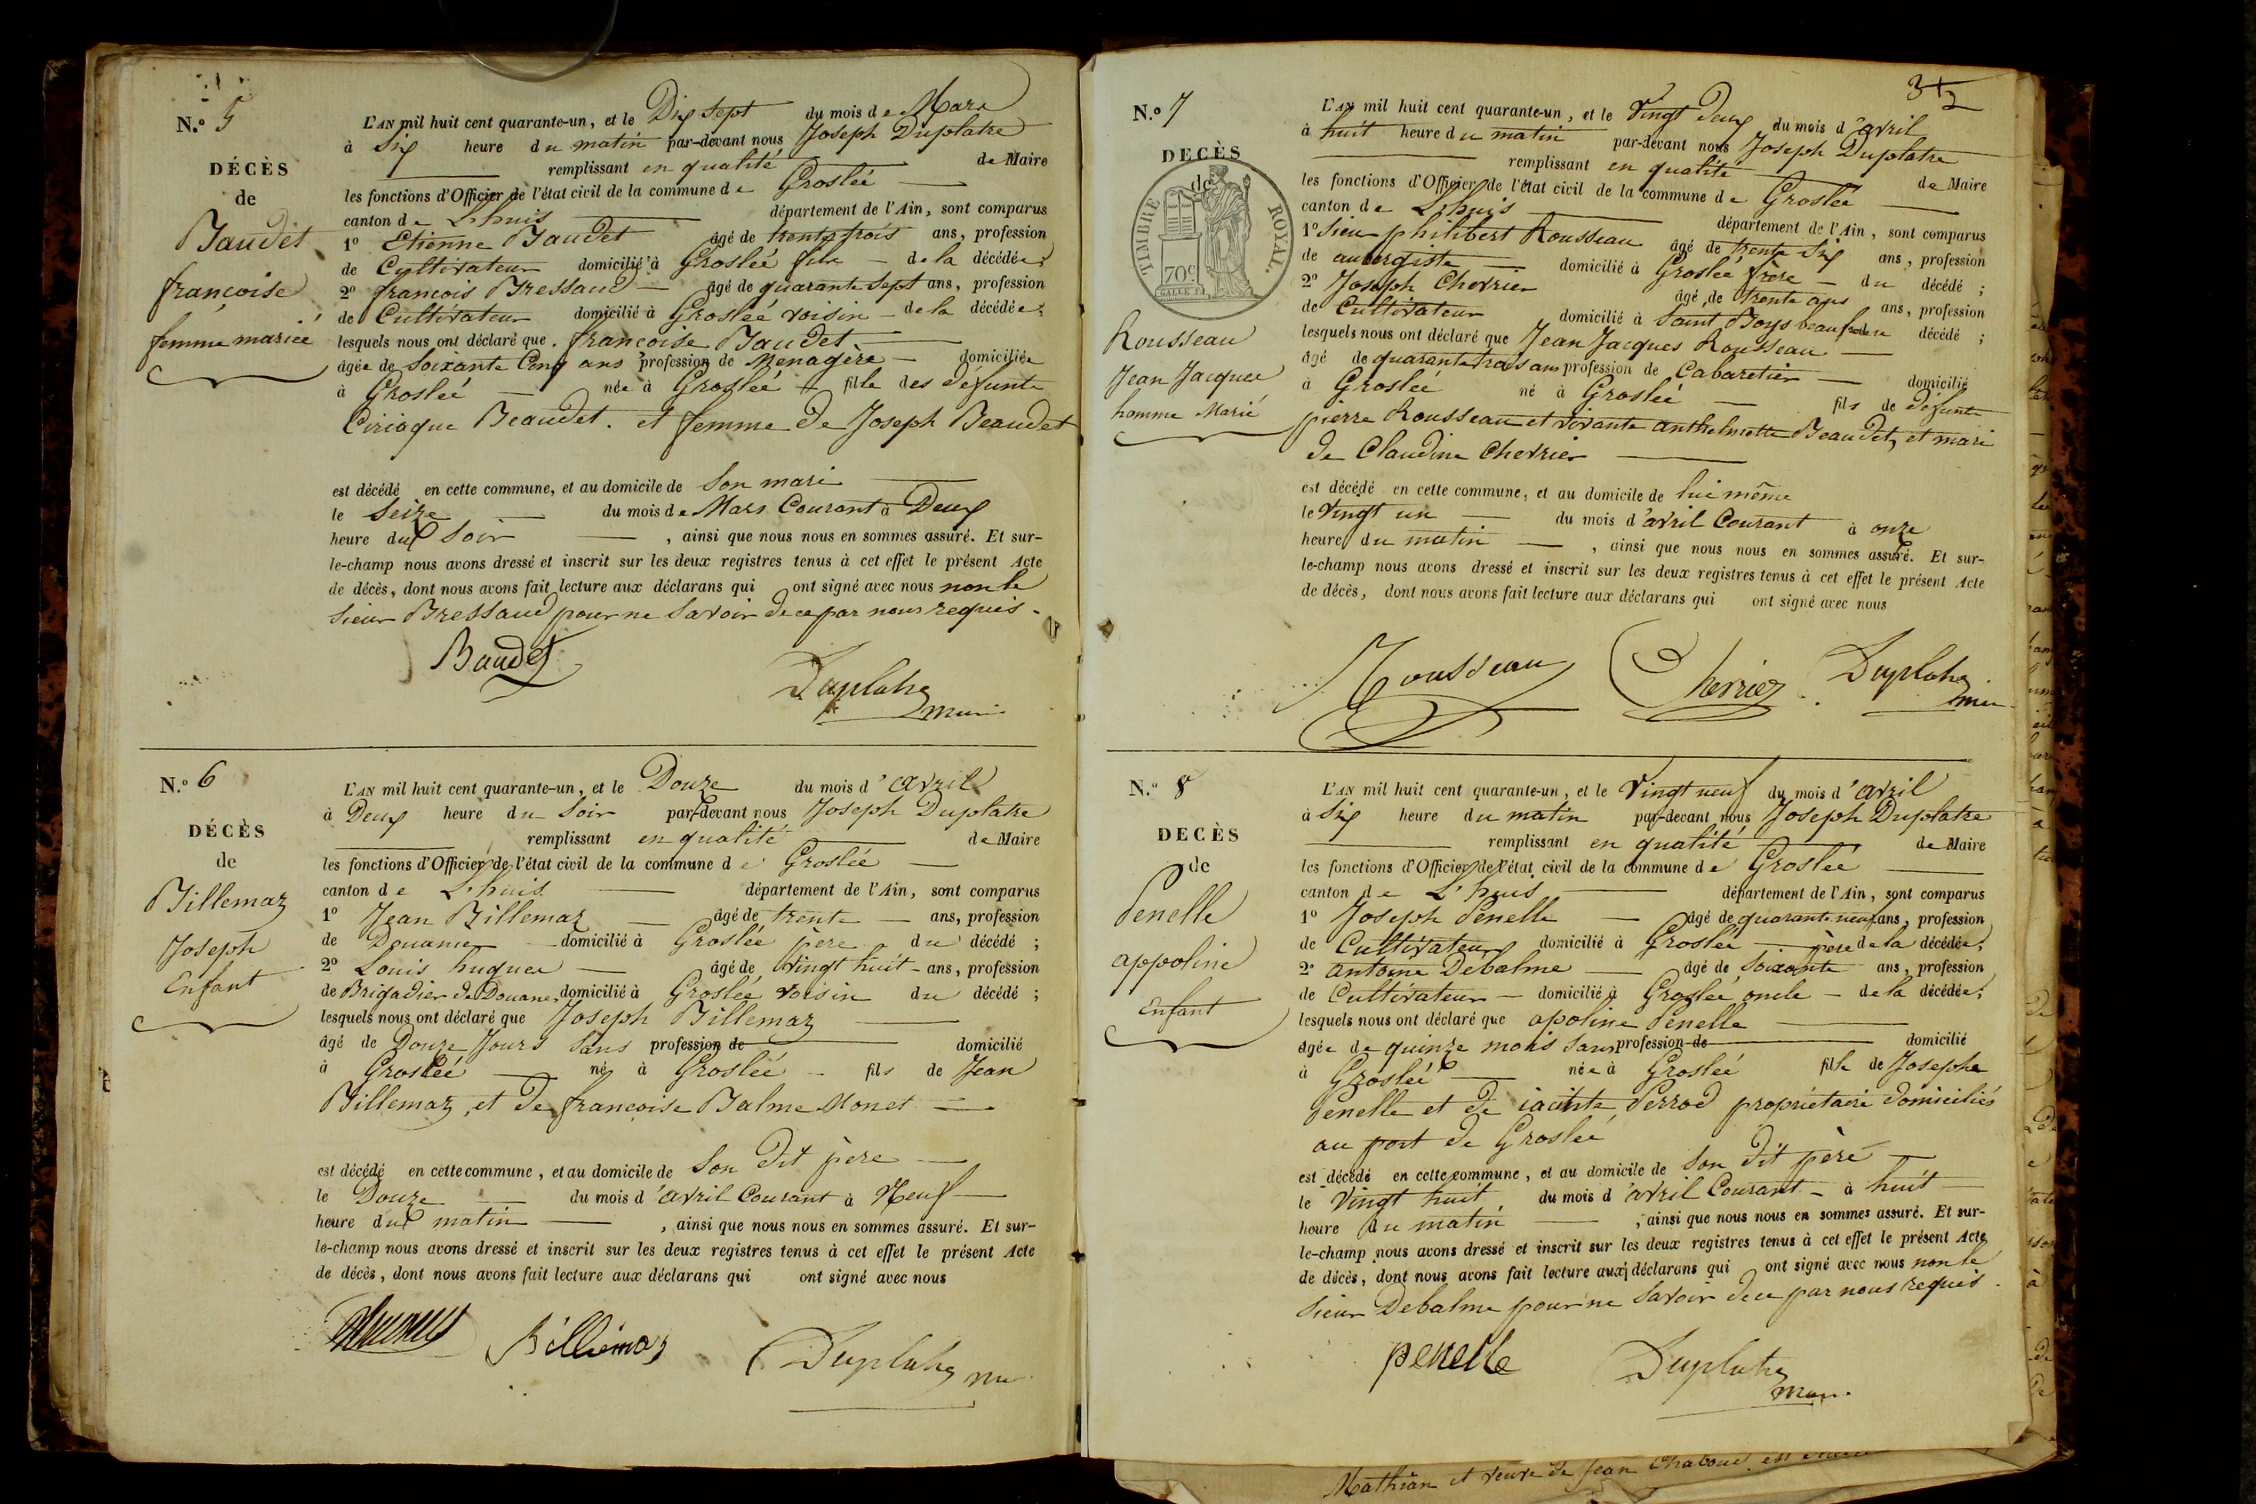 N.º 5
DÉCÈS
de
Baudet
françoise
femme mariée
L'AN mil huit cent quarante-un, et le Dix sept du mois de Mars
à Six heure du matin par-devant nous Joseph Duplatre
remplissant en qualité de Maire
les fonctions d'Officier de l'état civil de la commune de Groslée
canton de L'huis département de l'Ain, sont comparus
1º Etienne Baudet âgé de trente trois ans, profession
de Cultivateur domicilié à Groslée fils de la décédée;
2º françois Bressaud âgé de quarante sept ans, profession
de Cultivateur domicilié à Groslée voisin de la décédée;
lesquels nous ont déclaré que françoise Baudet
âgée de Soixante Cinq ans profession de Menagère domiciliée
à Groslée née à Groslée fille des défunts
Ciriaque Beaudet. et femme de Joseph Beaudet
est décédé en cette commune, et au domicile de Son mari
le Seize du mois de Mars Courant à Deux
heure du Soir , ainsi que nous nous en sommes assuré. Et sur-
le-champ nous avons dressé et inscrit sur les deux registres tenus à cet effet le présent Acte
de décès, dont nous avons fait lecture aux déclarans qui ont signé avec nous non le
Sieur Bressaud pour ne Savoir de ce par nous requis.
Baudet
Duplatre
N.º 6
DÉCÈS
de
Billemaz
Joseph
Enfant
L'AN mil huit cent quarante-un, et le Douze du mois d'avril
à Deux heure du Soir par-devant nous Joseph Duplatre
remplissant en qualité de Maire
les fonctions d'Officier de l'état civil de la commune de Groslée
canton de L'huis département de l'Ain, sont comparus
1º Jean Billemaz âgé de trente ans, profession
de Douanier domicilié à Groslée père du décédé;
2º Louis hugues âgé de Vingt huit ans, profession
de Brigadier de Douane, domicilié à Groslée voisin du décédé;
lesquels nous ont déclaré que Joseph Billemaz
âgé de Douze Jours Sans profession de domicilié
à Groslée né à Groslée fils de Jean
Billemaz, et de françoise Balme Monet
est décédé en cette commune, et au domicile de Son dit père
le Douze du mois d'avril Courant à Neuf
heure du matin , ainsi que nous nous en sommes assuré. Et sur-
le-champ nous avons dressé et inscrit sur les deux registres tenus à cet effet le présent Acte
de décès, dont nous avons fait lecture aux déclarans qui ont signé avec nous
Billémaz Duplatre
N.º 7
DECÈS
de
TIMBRE ROYAL.
70c
Rousseau
Jean Jacques
homme Marié
L'AN mil huit cent quarante-un, et le Vingt Deux du mois d'avril
à huit heure du matin par-devant nous Joseph Duplatre
remplissant en qualité de Maire
les fonctions d'Officier de l'état civil de la commune de Groslée
canton de L'huis département de l'Ain, sont comparus
1º Sieur philibert Rousseau âgé de trente Six ans, profession
de aubergiste domicilié à Groslée frère du décédé;
2º Joseph Cherrier âgé de trente ans, profession
de Cultivateur domicilié à Saint Boys beaufrère du décédé;
lesquels nous ont déclaré que Jean Jacques Rousseau
âgé de quarante trois ans profession de Cabaretier domicilié
à Groslée né à Groslée fils de défunt
pierre Rousseau et vivante anthelmette Beaudet, et mari
de Claudine Cherrier
est décédé en cette commune, et au domicile de lui même
le Vingt un du mois d'avril Courant à onze
heure du matin , ainsi que nous nous en sommes assuré. Et sur-
le-champ nous avons dressé et inscrit sur les deux registres tenus à cet effet le présent Acte
de décès, dont nous avons fait lecture aux déclarans qui ont signé avec nous
Rousseau Cherrier Duplatre
N.º 8
DECÈS
de
Penelle
appoline
Enfant
L'AN mil huit cent quarante-un, et le Vingt neuf du mois d'avril
à Six heure du matin par-devant nous Joseph Duplatre
remplissant en qualité de Maire
les fonctions d'Officier de l'état civil de la commune de Groslée
canton de L'huis département de l'Ain, sont comparus
1º Joseph Penelle âgé de quarante neuf ans, profession
de Cultivateur domicilié à Groslée père de la décédée;
2º antoine Debalme âgé de Soixante ans, profession
de Cultivateur domicilié à Groslée oncle de la décédée;
lesquels nous ont déclaré que apoline Penelle
âgée de quinze mois Sans profession de domicilié
à Groslée née à Groslée fille de Joseph
Penelle et de iacinte Perrod propriétaire domiciliés
au port de Groslée
est décédé en cette commune, et au domicile de Son dit père
le Vingt huit du mois d'avril Courant à huit
heure du matin , ainsi que nous nous en sommes assuré. Et sur-
le-champ nous avons dressé et inscrit sur les deux registres tenus à cet effet le présent Acte
de décès, dont nous avons fait lecture aux déclarans qui ont signé avec nous non le
Sieur Debalme pour ne Savoir de ce par nous requis
penelle Duplatre
Mathian et veuve de Jean Chaboud